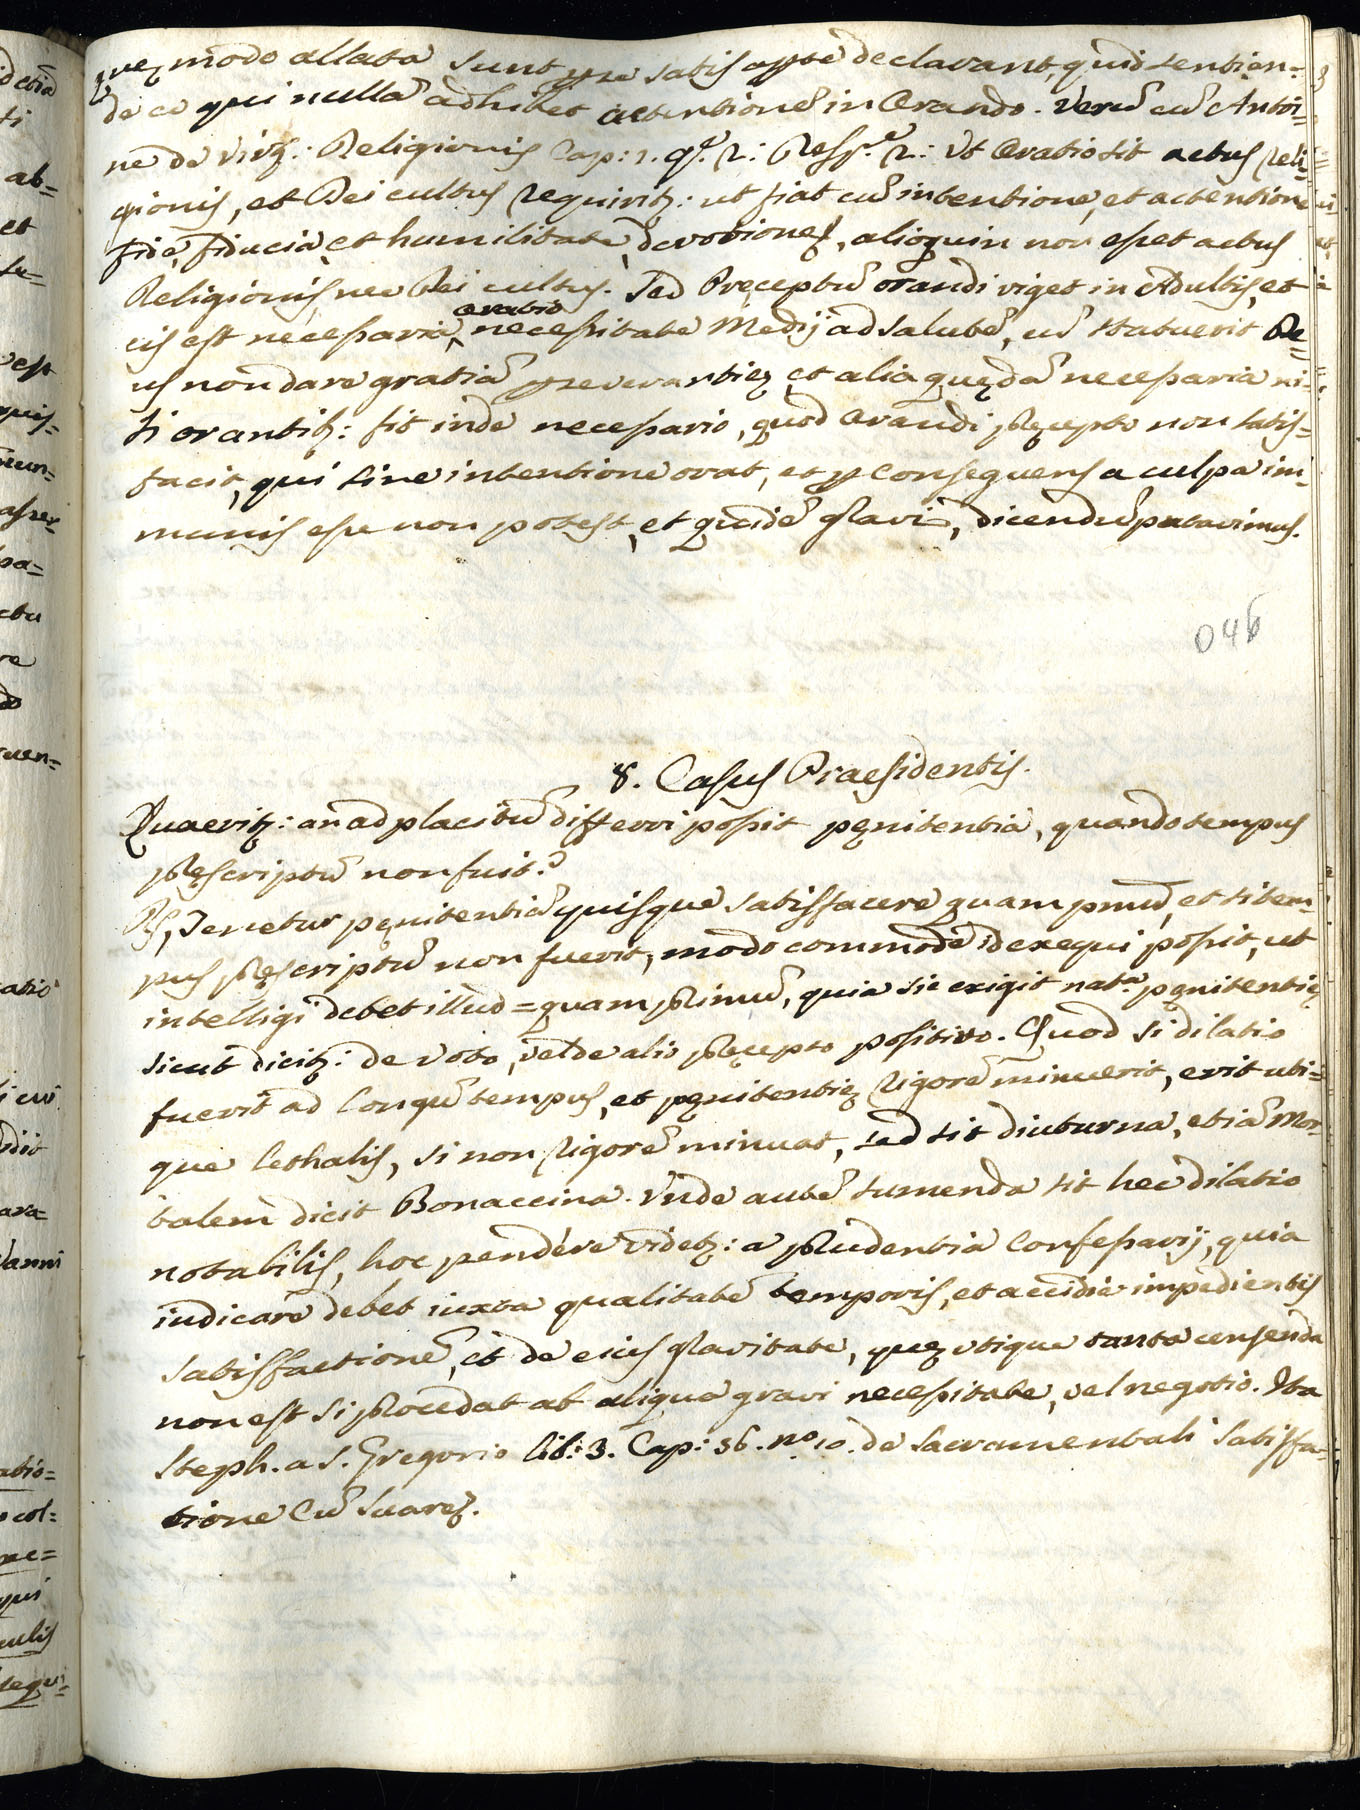 quę modo allata sunt satis apte declarant, quid sentien=
de eo qui nullā adhibet attentionē in Orando. Verū cū Antoi=
ne de Virt: Religionis Cap: 1. qē. 2: Resp.ē 2: Ut Oratio sit actus reli=
gionis, et Dei cultus requiritʒ: ut fiat cū intentione, et actentione
fide, fiducia, et humilitate, devotioneq, alioquin non esset actus
Religionis, nec Dei cultus. Sed Pręceptū orandi viget in Adultis, et
eis est necessaria oratio necessitate Medij ad salutē, cū statuerit De=
us non dare gratiā perseverantię, et alia quędā necessaria ni=
si orantibʒ: fit inde necessario, quod Orandi pręcepto non satis=
facit, qui sine intentione orat, et p consequens a culpa im=
munis esse non potest, et quidē gravi, dicendū putavimus.
046
8. Casus Praesidentis.
Quaeritʒ: an ad placitū differri possit pęnitentia, quando tempus
pręscriptū non fuit?
Rs, Tenetur pęnitentiā quisque satisfacere quam pmū, et si tem=
pus pręscriptū non fuerit, modo commode id exequi possit, ut
intelligi debet illud = quam primū, quia sic exigit nat.a pęnitentię
sicut dicitʒ: de voto, vel de alio pręcepto positivo. Quod si dilatio
fuerit ad longū tempus, et pęnitentię rigorē minuerit, erit uti=
que lethalis, si non rigorē minuat, sed sit diuturna, etiā Mor=
talem dicit Bonaccina. Unde autē sumenda sit hec dilatio
notabilis, hoc pendere videtʒ: a prudentia Confessarij, quia
iudicare debet iuxta qualitatē temporis, et impedientis
satisfactionē, et de eius gravitate, quę utique tanta censenda
non est si procedat ab aliqua gravi necessitate, vel negotio. Ita
Steph. a S. Gregorio lib: 3. Cap: 36. no 10. de Sacramentali Satisfa=
tione Cū Suarez.